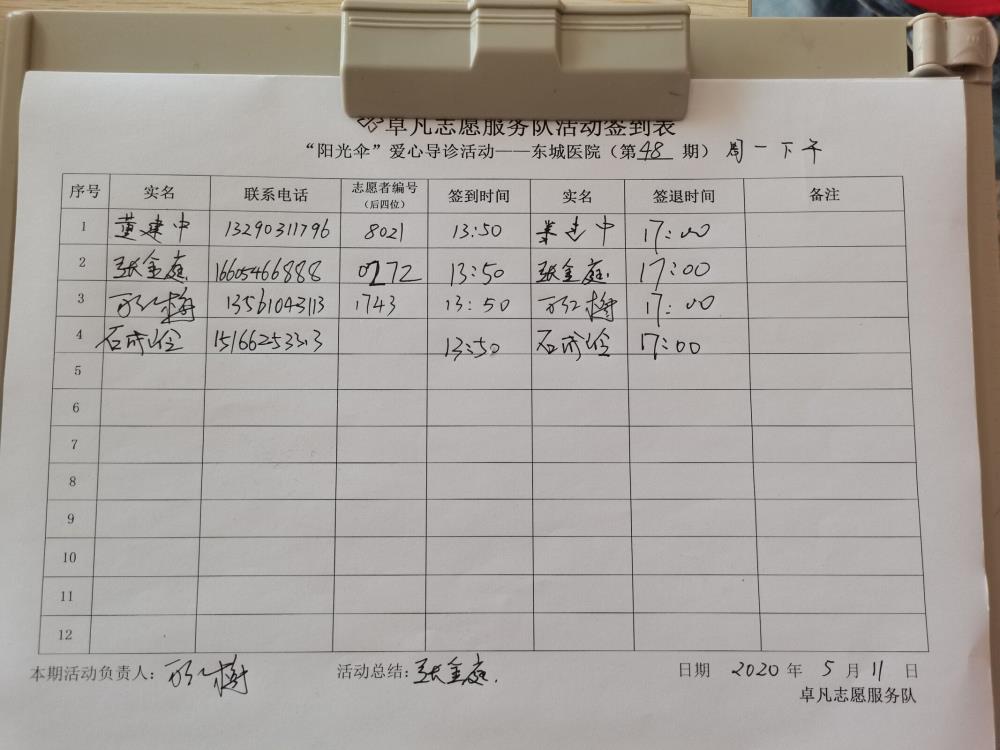 卓凡志愿服务队活动签到表
“阳光伞”爱心导诊活动——东城医院（第48期）周一下午
序号 实名 联系电话 志愿者编号（后四位） 签到时间 实名 签退时间 备注
1 黄建中 13290311796 8021 13:50 黄建中 17:00
2 张金庭 16605466888 0272 13:50 张金庭 17:00
3 13561043113 1743 13:50 17:00
4 15166253313 13:50 17:00
5
6
7
8
9
10
11
12
本期活动负责人： 活动总结：张金庭. 日期 2020年5月11日
卓凡志愿服务队